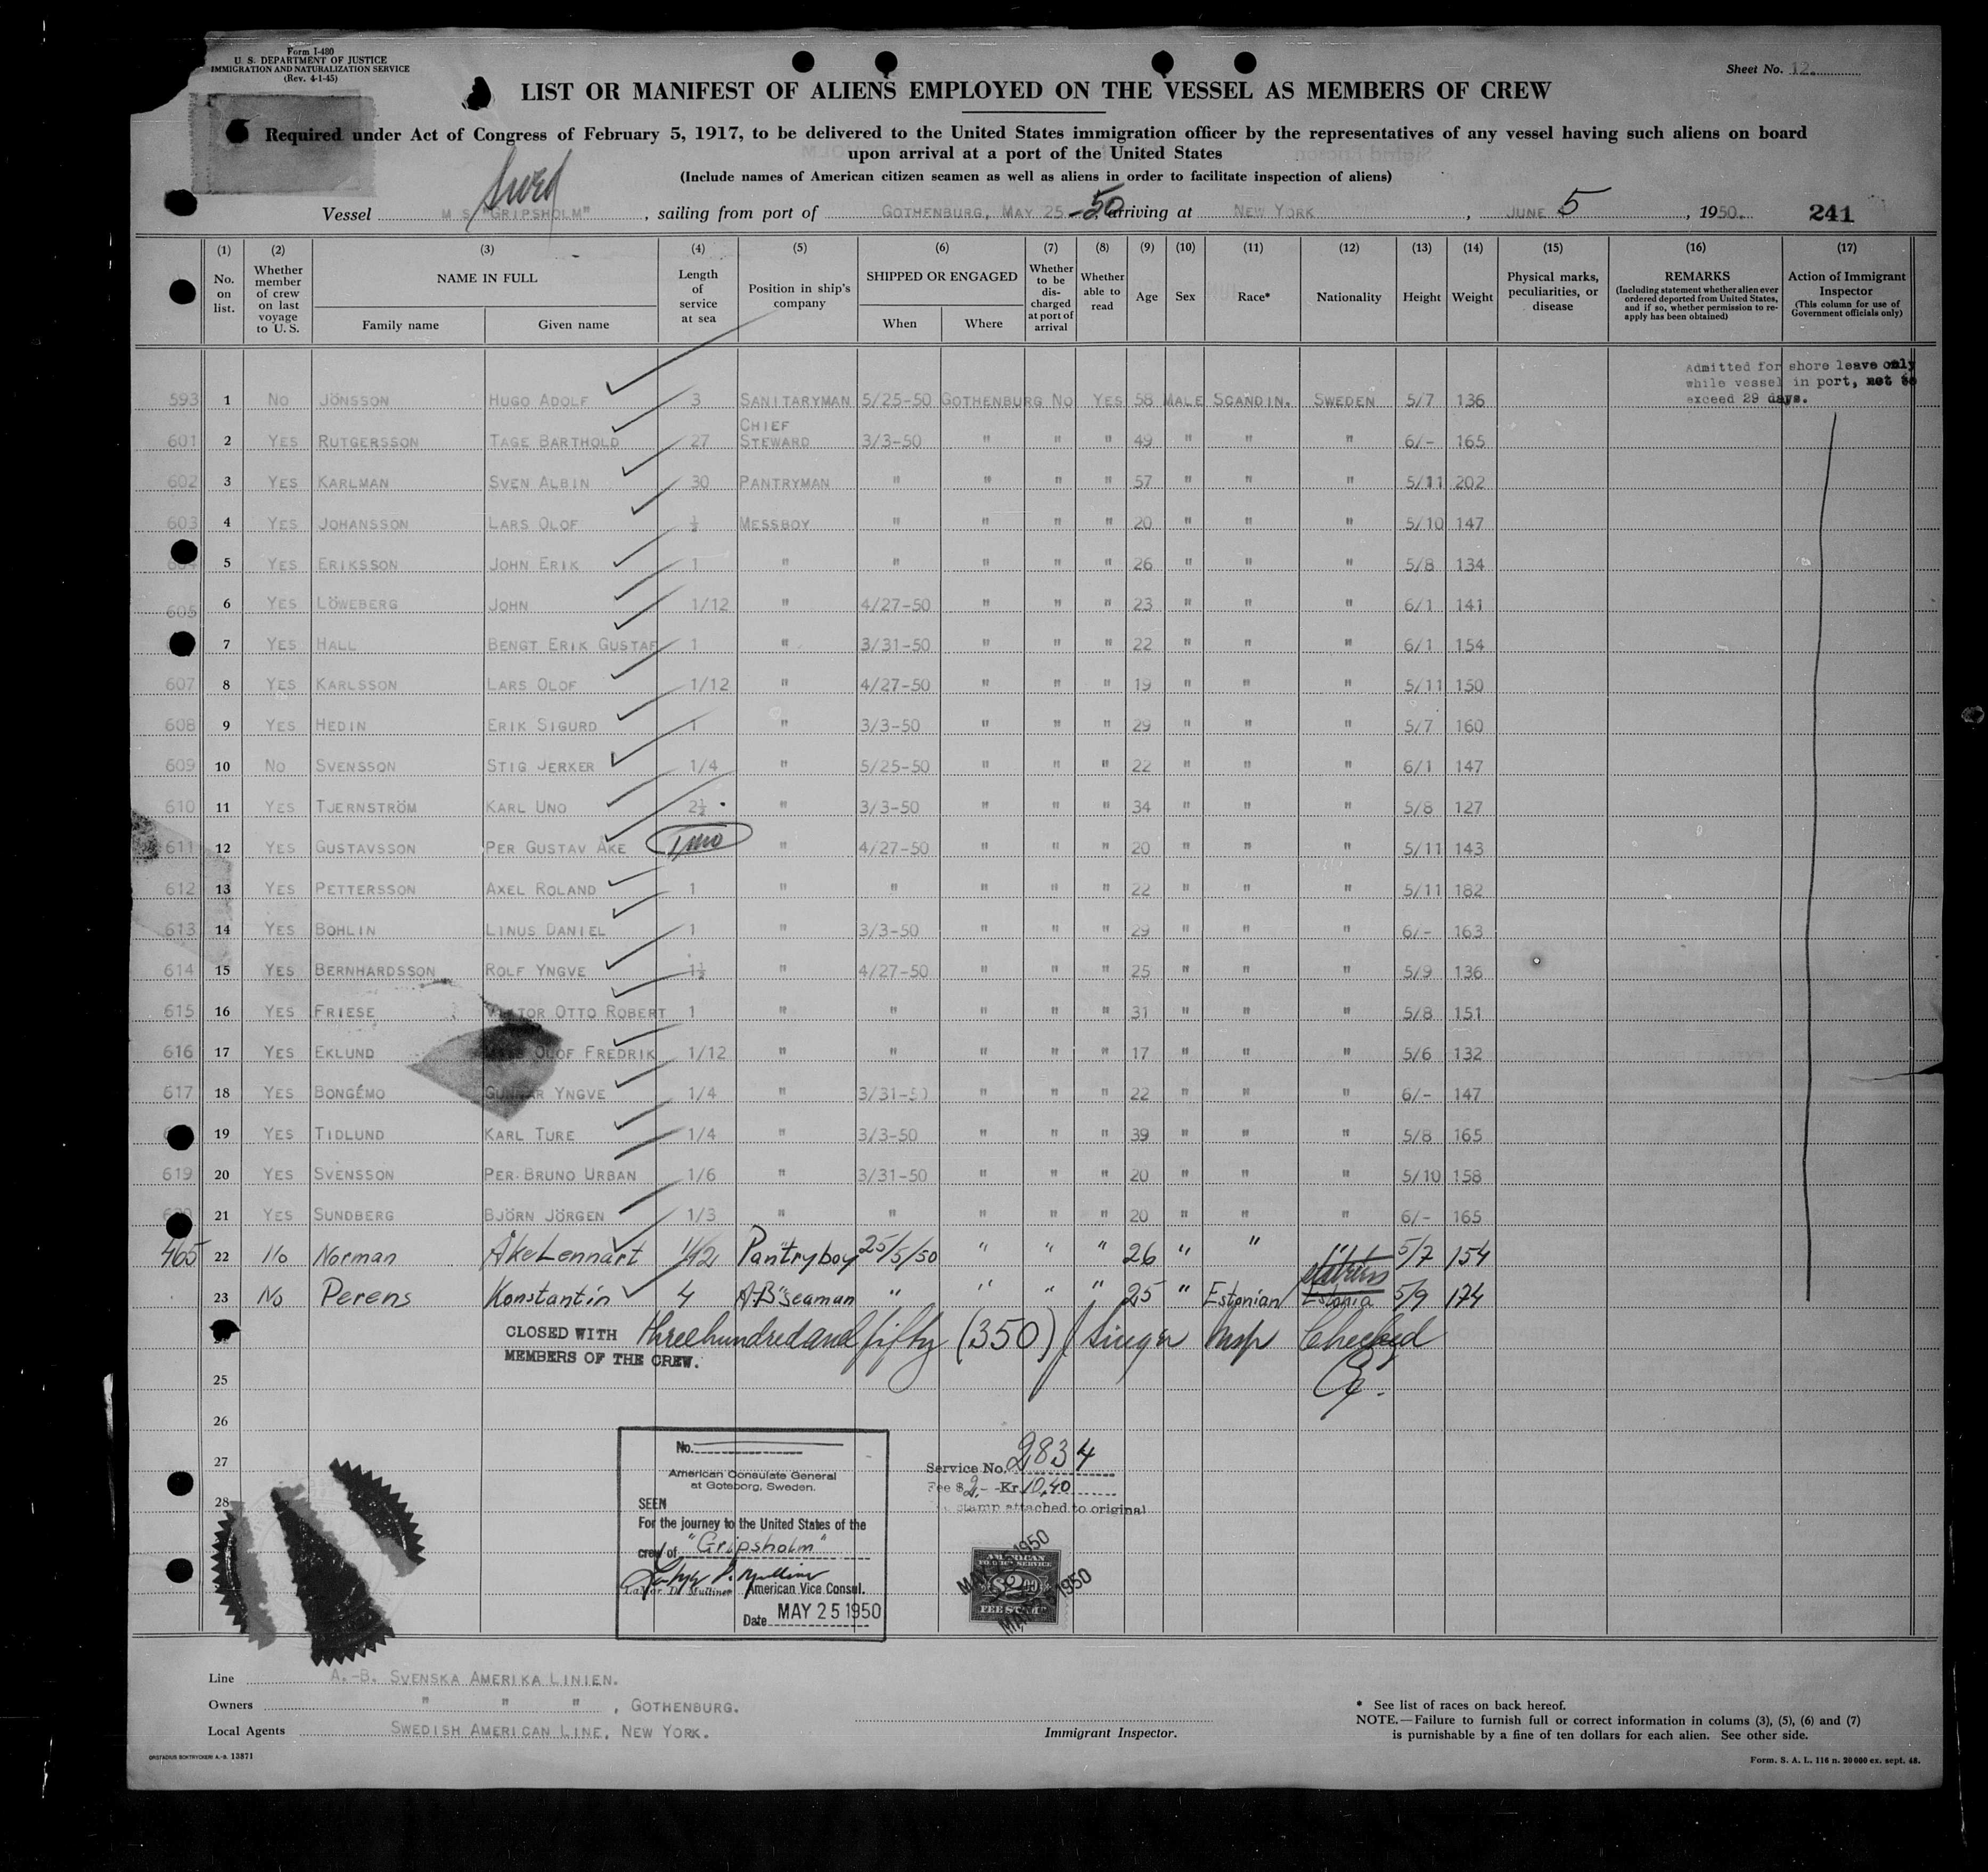 Form I-480
U. S. DEPARTMENT OF JUSTICE
IMMIGRATION AND NATURALIZATION SERVICE
(Rev. 4-1-45)
Sheet No. 12.
LIST OR MANIFEST OF ALIENS EMPLOYED ON THE VESSEL AS MEMBERS OF CREW
Required under Act of Congress of February 5, 1917, to be delivered to the United States immigration officer by the representatives of any vessel having such aliens on board
upon arrival at a port of the United States
(Include names of American citizen seamen as well as aliens in order to facilitate inspection of aliens)
Swed
Vessel M S "GRIPSHOLM", sailing from port of GOTHENBURG, MAY 25-50 arriving at NEW YORK, JUNE 5, 1950. 241
(1) (2) (3) (4) (5) (6) (7) (8) (9) (10) (11) (12) (13) (14) (15) (16) (17)
No. on list. Whether member of crew on last voyage to U. S. NAME IN FULL Family name Given name Length of service at sea Position in ship's company SHIPPED OR ENGAGED When Where Whether to be discharged at port of arrival Whether able to read Age Sex Race* Nationality Height Weight Physical marks, peculiarities, or disease REMARKS (Including statement whether alien ever ordered deported from United States, and if so, whether permission to re-apply has been obtained) Action of Immigrant Inspector (This column for use of Government officials only)
Admitted for shore leave only
while vessel in port, not to
exceed 29 days.
593 1 NO JÖNSSON HUGO ADOLF 3 SANITARYMAN 5/25-50 GOTHENBURG NO YES 58 MALE SCANDIN. SWEDEN 5/7 136
601 2 YES RUTGERSSON TAGE BARTHOLD 27 CHIEF STEWARD 3/3-50 " " " 49 " " " 6/- 165
602 3 YES KARLMAN SVEN ALBIN 30 PANTRYMAN " " " " 57 " " " 5/11 202
603 4 YES JOHANSSON LARS OLOF ½ MESSBOY " " " " 20 " " " 5/10 147
5 YES ERIKSSON JOHN ERIK 1 " " " " " 26 " " " 5/8 134
605 6 YES LÖWEBERG JOHN 1/12 " 4/27-50 " " " 23 " " " 6/1 141
7 YES HALL BENGT ERIK GUSTAF 1 " 3/31-50 " " " 22 " " " 6/1 154
607 8 YES KARLSSON LARS OLOF 1/12 " 4/27-50 " " " 19 " " " 5/11 150
608 9 YES HEDIN ERIK SIGURD 1 " 3/3-50 " " " 29 " " " 5/7 160
609 10 NO SVENSSON STIG JERKER 1/4 " 5/25-50 " " " 22 " " " 6/1 147
610 11 YES TJERNSTRÖM KARL UNO 2½ " 3/3-50 " " " 34 " " " 5/8 127
611 12 YES GUSTAVSSON PER GUSTAV ÅKE 1 mo " 4/27-50 " " " 20 " " " 5/11 143
612 13 YES PETTERSSON AXEL ROLAND 1 " " " " " 22 " " " 5/11 182
613 14 YES BOHLIN LINUS DANIEL 1 " 3/3-50 " " " 29 " " " 6/- 163
614 15 YES BERNHARDSSON ROLF YNGVE 1½ " 4/27-50 " " " 25 " " " 5/9 136
615 16 YES FRIESE OTTO ROBERT 1 " " " " " 31 " " " 5/8 151
616 17 YES EKLUND OLOF FREDRIK 1/12 " " " " " 17 " " " 5/6 132
617 18 YES BONGÉMO GUNNAR YNGVE 1/4 " 3/31-50 " " " 22 " " " 6/- 147
19 YES TIDLUND KARL TURE 1/4 " 3/3-50 " " " 39 " " " 5/8 165
619 20 YES SVENSSON PER BRUNO URBAN 1/6 " 3/31-50 " " " 20 " " " 5/10 158
21 YES SUNDBERG BJÖRN JÖRGEN 1/3 " " " " " 20 " " " 6/- 165
465 22 No Norman Åke Lennart 1/12 Pantryboy 25/5/50 " " " 26 " " " 5/7 154
23 No Perens Konstantin 4 AB seaman " " " " 25 " Estonian Estonia 5/9 174
CLOSED WITH three hundred and fifty (350) Singer Insp Checked
MEMBERS OF THE CREW.
25
26
27
28
No.
American Consulate General
at Goteborg, Sweden.
SEEN
For the journey to the United States of the
crew of "Gripsholm"
American Vice Consul.
Date MAY 25 1950
Service No. 2834
Fee $ 2,- -Kr. 10,40
stamp attached to original
AMERICAN
FOREIGN SERVICE
FEE STAMP
Line A.-B. SVENSKA AMERIKA LINIEN.
Owners " " " , GOTHENBURG.
Local Agents SWEDISH AMERICAN LINE, NEW YORK.
Immigrant Inspector.
* See list of races on back hereof.
NOTE.—Failure to furnish full or correct information in colums (3), (5), (6) and (7)
is punishable by a fine of ten dollars for each alien. See other side.
ORSTADIUS BOKTRYCKERI A.-B. 13871
Form. S. A. L. 116 n. 20000 ex. sept. 48.